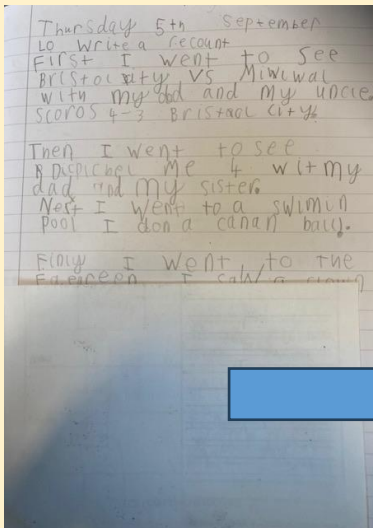 Thursday 5th September
Lo write a recount
First I went to see
Bristol city VS Miwwal
with my dad and my uncle.
Scoros 4-3 Bristaol City.
Then I went to see
Dispichel Me 4 wit my
dad and my sister.
Nest I went to a swimin
Pool I don a canan ball.
Finly I went to the
I saw a